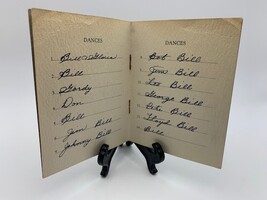 DANCES
1. Bill &
2. Bill
3. Gordy
4. Don
5. Bill
6. Jim Bill
7. Johnny Bill
DANCES
Bob Bill
Jim Bill
Les Bill
George Bill
Pete Bill
Lloyd Bill
Bill